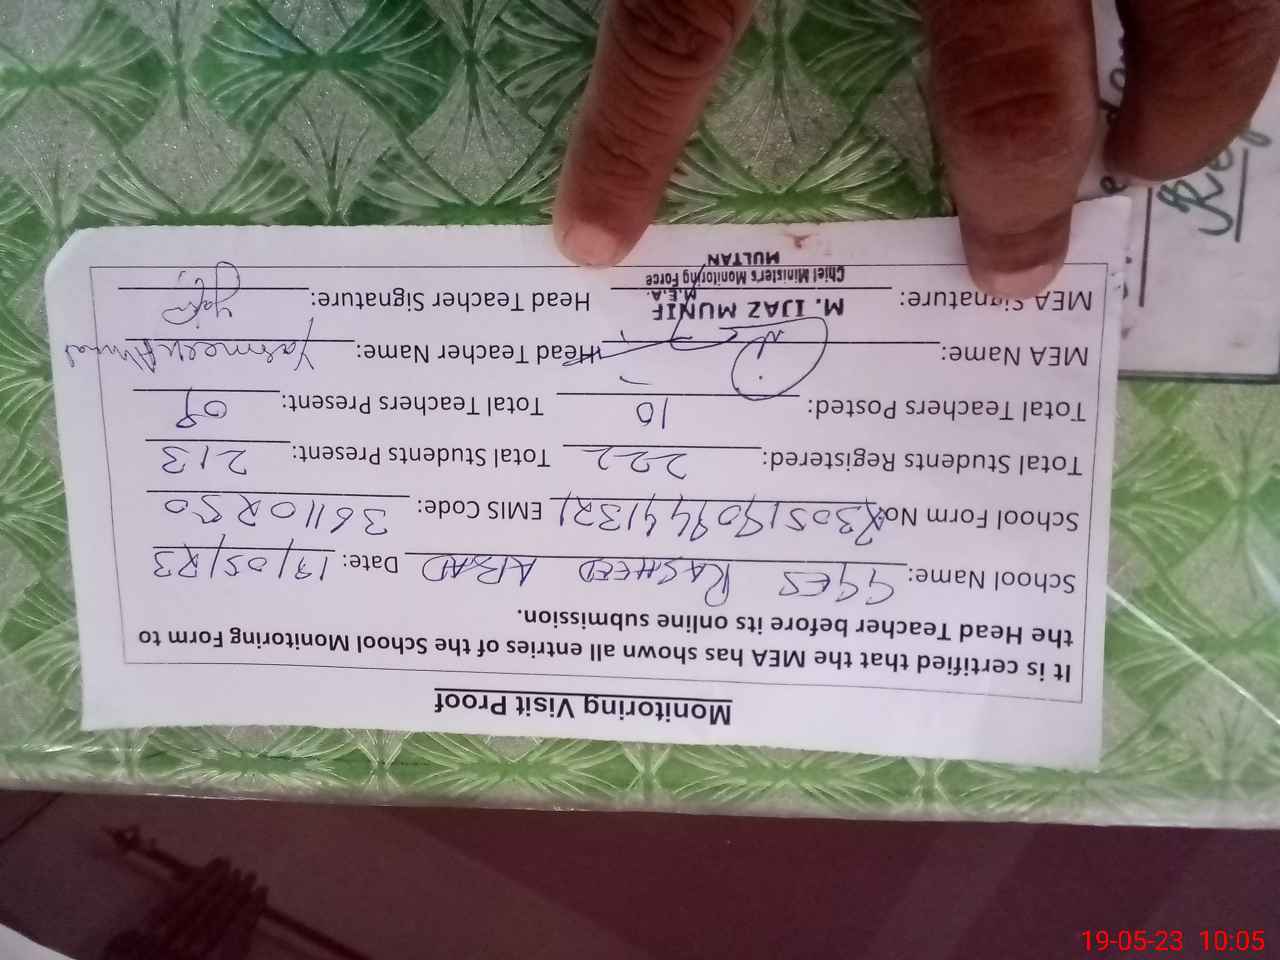 Monitoring Visit Proof
It is certified that the MEA has shown all entries of the School Monitoring Form to
the Head Teacher before its online submission.
School Name: GGES RASHEED ABAD Date: 19/05/23
School Form No. EMIS Code: 36110250
Total Students Registered: 222 Total Students Present: 213
Total Teachers Posted: 10 Total Teachers Present: 09
MEA Name: Head Teacher Name: Yasmeen
MEA Signature: Head Teacher Signature:
M. IJAZ MUNIF
M.E.A.
Chief Minister's Monitoring Force
MULTAN
19-05-23 10:05